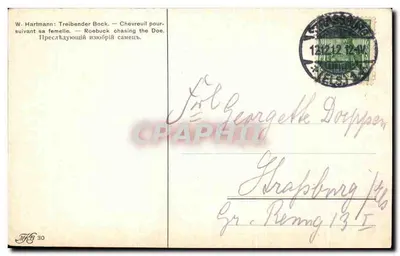 W. Hartmann: Treibender Bock. — Chevreuil pour-
suivant sa femelle. — Roebuck chasing the Doe.
Преслѣдующій изюбрій самецъ.
STRASSBURG
12.12.12 12-1V
(ELS.)
Frl. Georgette Doeppen
CPARAMA
Straßburg i/Els
Gr. Renng 13 I
30